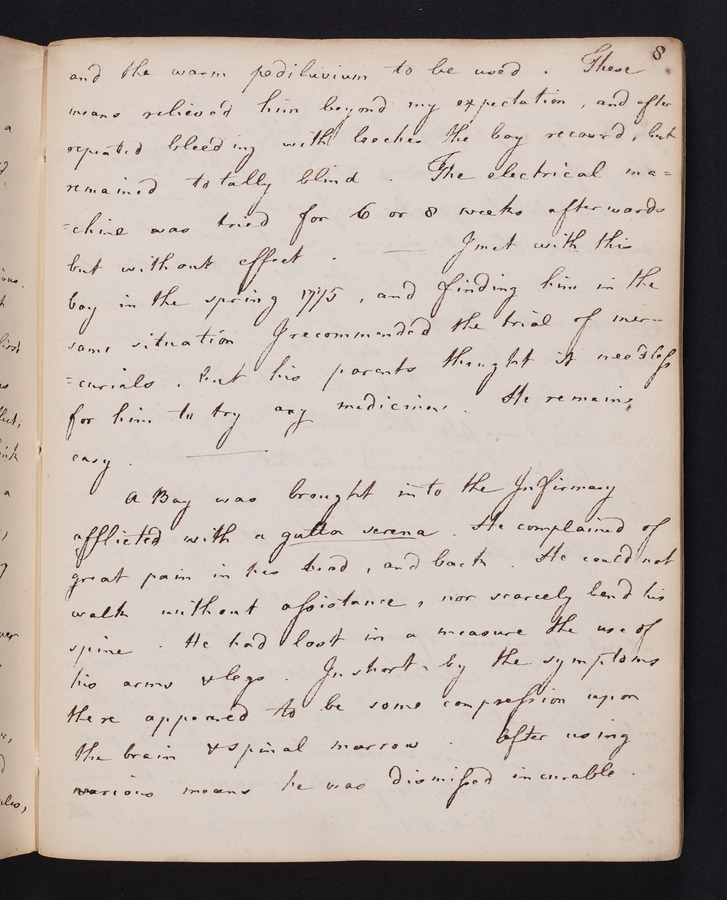 8
and the warm pediluvium to be used . These
means relieved him beyond my expectation , and after
repeated bleeding with leeches the boy recover'd , but
remained totally blind . The electrical ma=
=chine was tried for 6 or 8 weeks afterwards
but without effect . — I met with this
boy in the spring 1775 , and finding him in the
same situation I recommended the trial of mer-
=curials . but his parents thought it needless
for him to try any medicines . He remains
easy . —
A Boy was brought into the Infirmary
afflicted with a gutta serena . He complained of
great pain in his head , and back . He could not
walk without assistance , nor scarcely bend his
spine . He had lost in a measure the use of
his arms & legs . In short - by the symptoms
there appeared to be some compression upon
the brain & spinal marrow . After using
various means he was dismissed incurable .